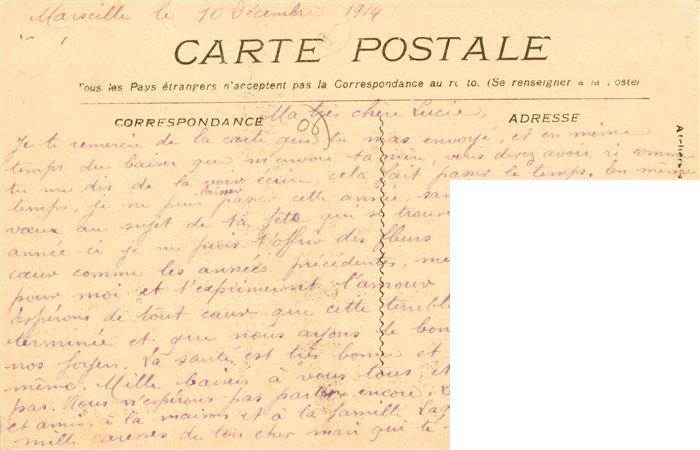 Marseille le 10 Décembre 1914
CARTE POSTALE
Tous les Pays étrangers n'acceptent pas la Correspondance au recto. (Se renseigner à la Poste)
CORRESPONDANCE
ADRESSE
Ma très chère Lucie,
Je te remercie de la carte que tu mas envoyé, et en même
temps du baiser que m'envoie ta mère, vous devez avoir ri comme
tu me dis de la voir écrire, cela fait passer le temps. En même
temps, je ne puis laisser passer cette année, san
vœux au sujet de ta fête qui se trouv
année-ci je ne puis t'offrir des fleurs
cœur comme les années précédentes, me
pour moi et t'exprimeront l'amour
Espérons de tout cœur que cette terribl
terminée et que nous ayons le bon
nos foyers. La santé est très bonne et
même. Mille baisers à vous tous et
pas. Nous n'espérons pas partir encore,
et amis, à la maison et à la famille Lag
mille caresses de ton cher mari qui te